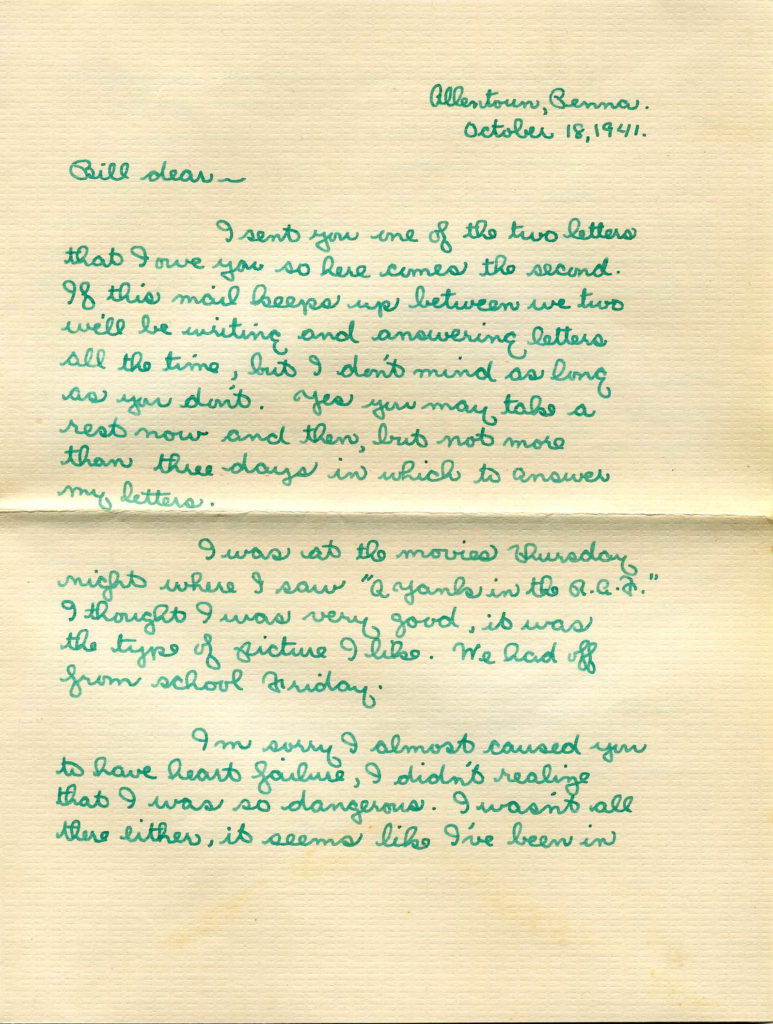 Allentown, Penna.
October 18, 1941.
Bill dear~
I sent you one of the two letters
that I owe you so here comes the second.
If this mail keeps up between we two
we'll be writing and answering letters
all the time, but I don't mind as long
as you don't. Yes you may take a
rest now and then, but not more
than three days in which to answer
my letters.
I was at the movies Thursday
night where I saw "A Yank in the R.A.F."
I thought I was very good, it was
the type of picture I like. We had off
from school Friday.
I'm sorry I almost caused you
to have heart failure, I didn't realize
that I was so dangerous. I wasn't all
there either, it seems like I've been in